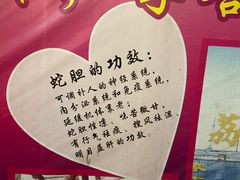 蛇胆的功效:
可调补人的神经系统,
内分泌系统和免疫系统,
延缓机体衰老;
蛇胆性凉、味苦微甘,
有行气祛痰、搜风祛湿、
明目益肝的功效
荔